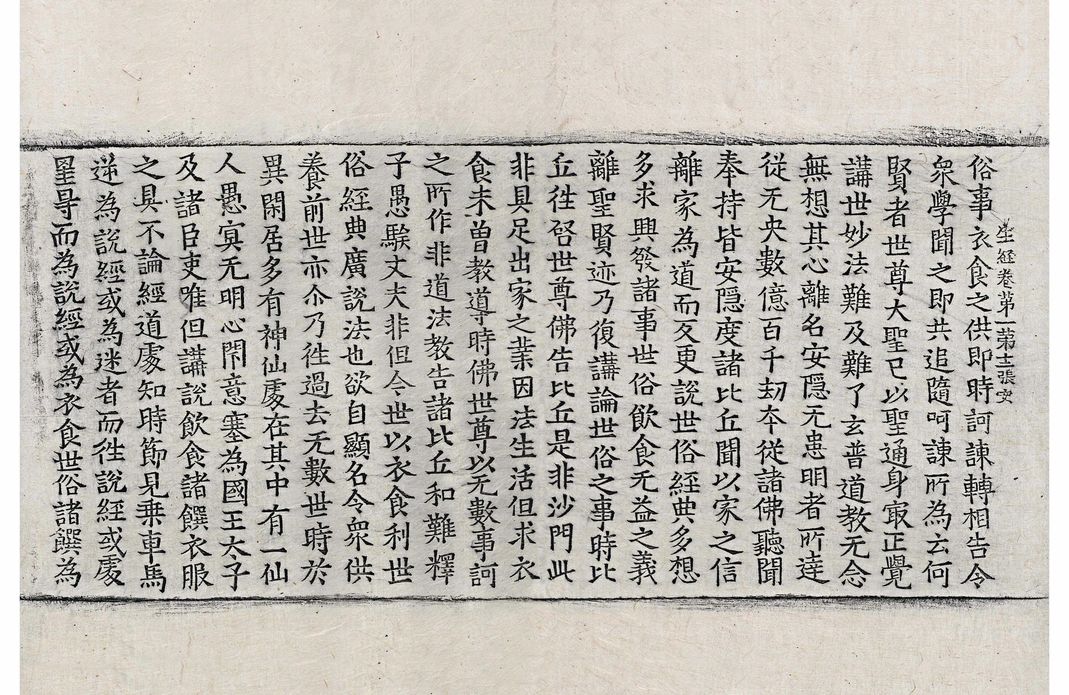 生經卷第一 第十二張 安
俗事衣食之供即時訶諫轉相告令
衆學聞之即共追隨呵諫所為云何
賢者世尊大聖已以聖通身㝡正覺
講世妙法難及難了玄普道教无念
無想其心離名安隱无患明者所達
從无央數億百千刧本從諸佛聽聞
奉持皆安隱度諸比丘聞以家之信
離家為道而反更說世俗經典多想
多求興發諸事世俗飲食无益之義
離聖賢迹乃復講論世俗之事時比
丘徃啓世尊佛告比丘是非沙門此
非具足出家之業因法生活但求衣
食未曾教導時佛世尊以无數事訶
之所作非道法教告諸比丘和難釋
子愚騃丈夫非但今世以衣食利世
俗經典廣說法也欲自顯名令衆供
養前世亦尒乃徃過去无數世時於
異閑居多有神仙處在其中有一仙
人愚冥无明心閇意塞為國王太子
及諸臣吏唯但講說飲食諸饌衣服
之具不論經道處知時節見乗車馬
逆為說經或為迷者而徃說經或處
星㝵而為說經或為衣食世俗諸饌為